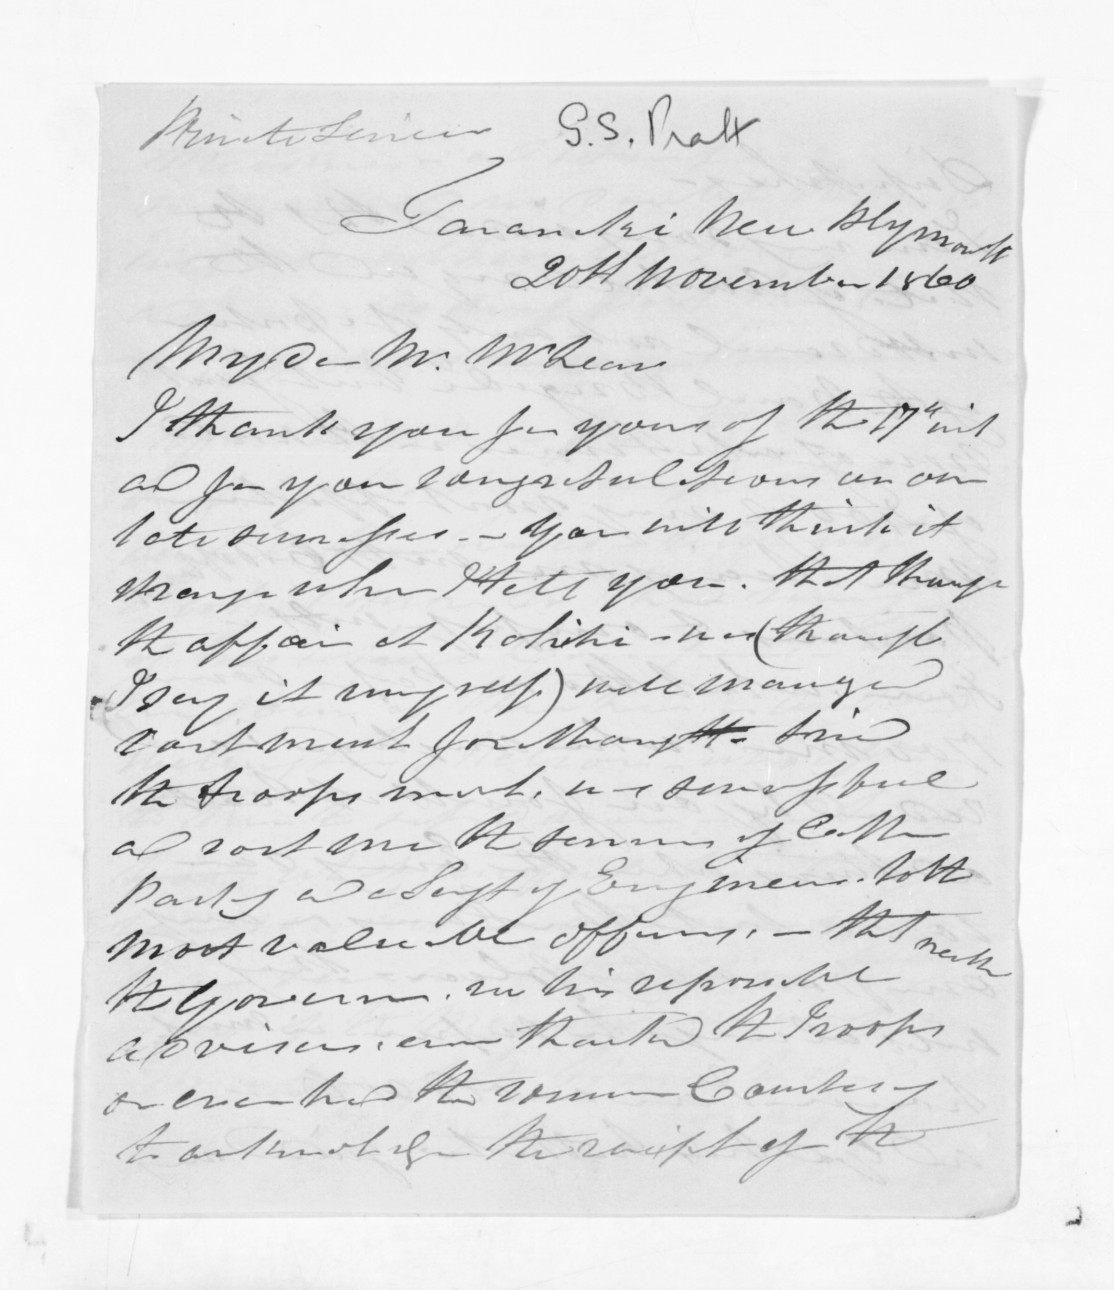 Private
G.S. Pratt
Taranaki New Plymouth
20th November 1860
My dear Mr. McLean
I thank you for yours of the 17th inst
and for your congratulations on our
late successes - You will think it
strange when I tell you. that though
the affair at Kohihi - was (though
I say it myself) well managed
and the
the troops most. successful
and cost me the services of Capn
Pasley and a Sergt of Engineers. both
most valuable officers. - that neither
the Governor. nor his responsible
advisers. even thanked the Troops
or even had the common Courtesy
to acknowledge the receipt of the